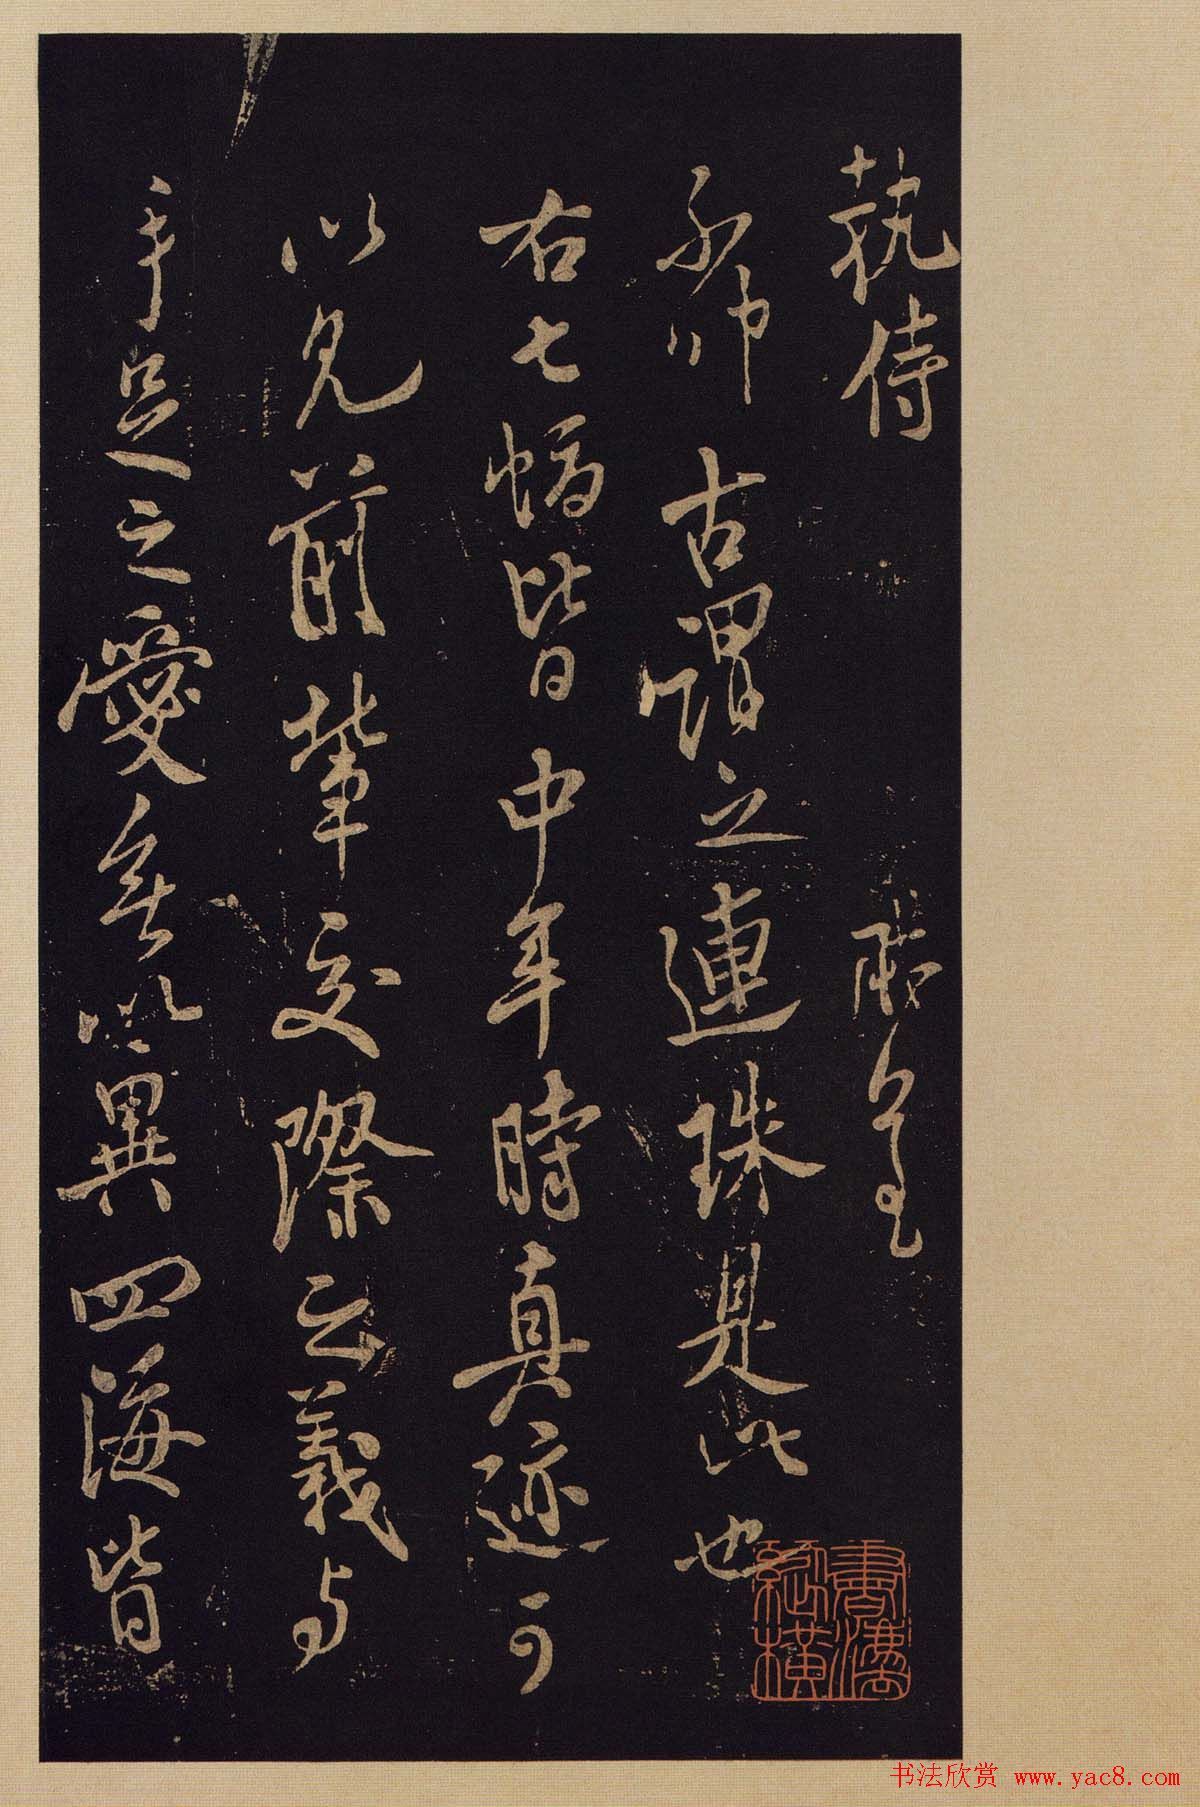 執侍
古謂之連珠是此也
右七幅皆中年時真迹可
以見前輩交際之義与
手足之愛無以異四海皆
书法欣赏 www.yac8.com